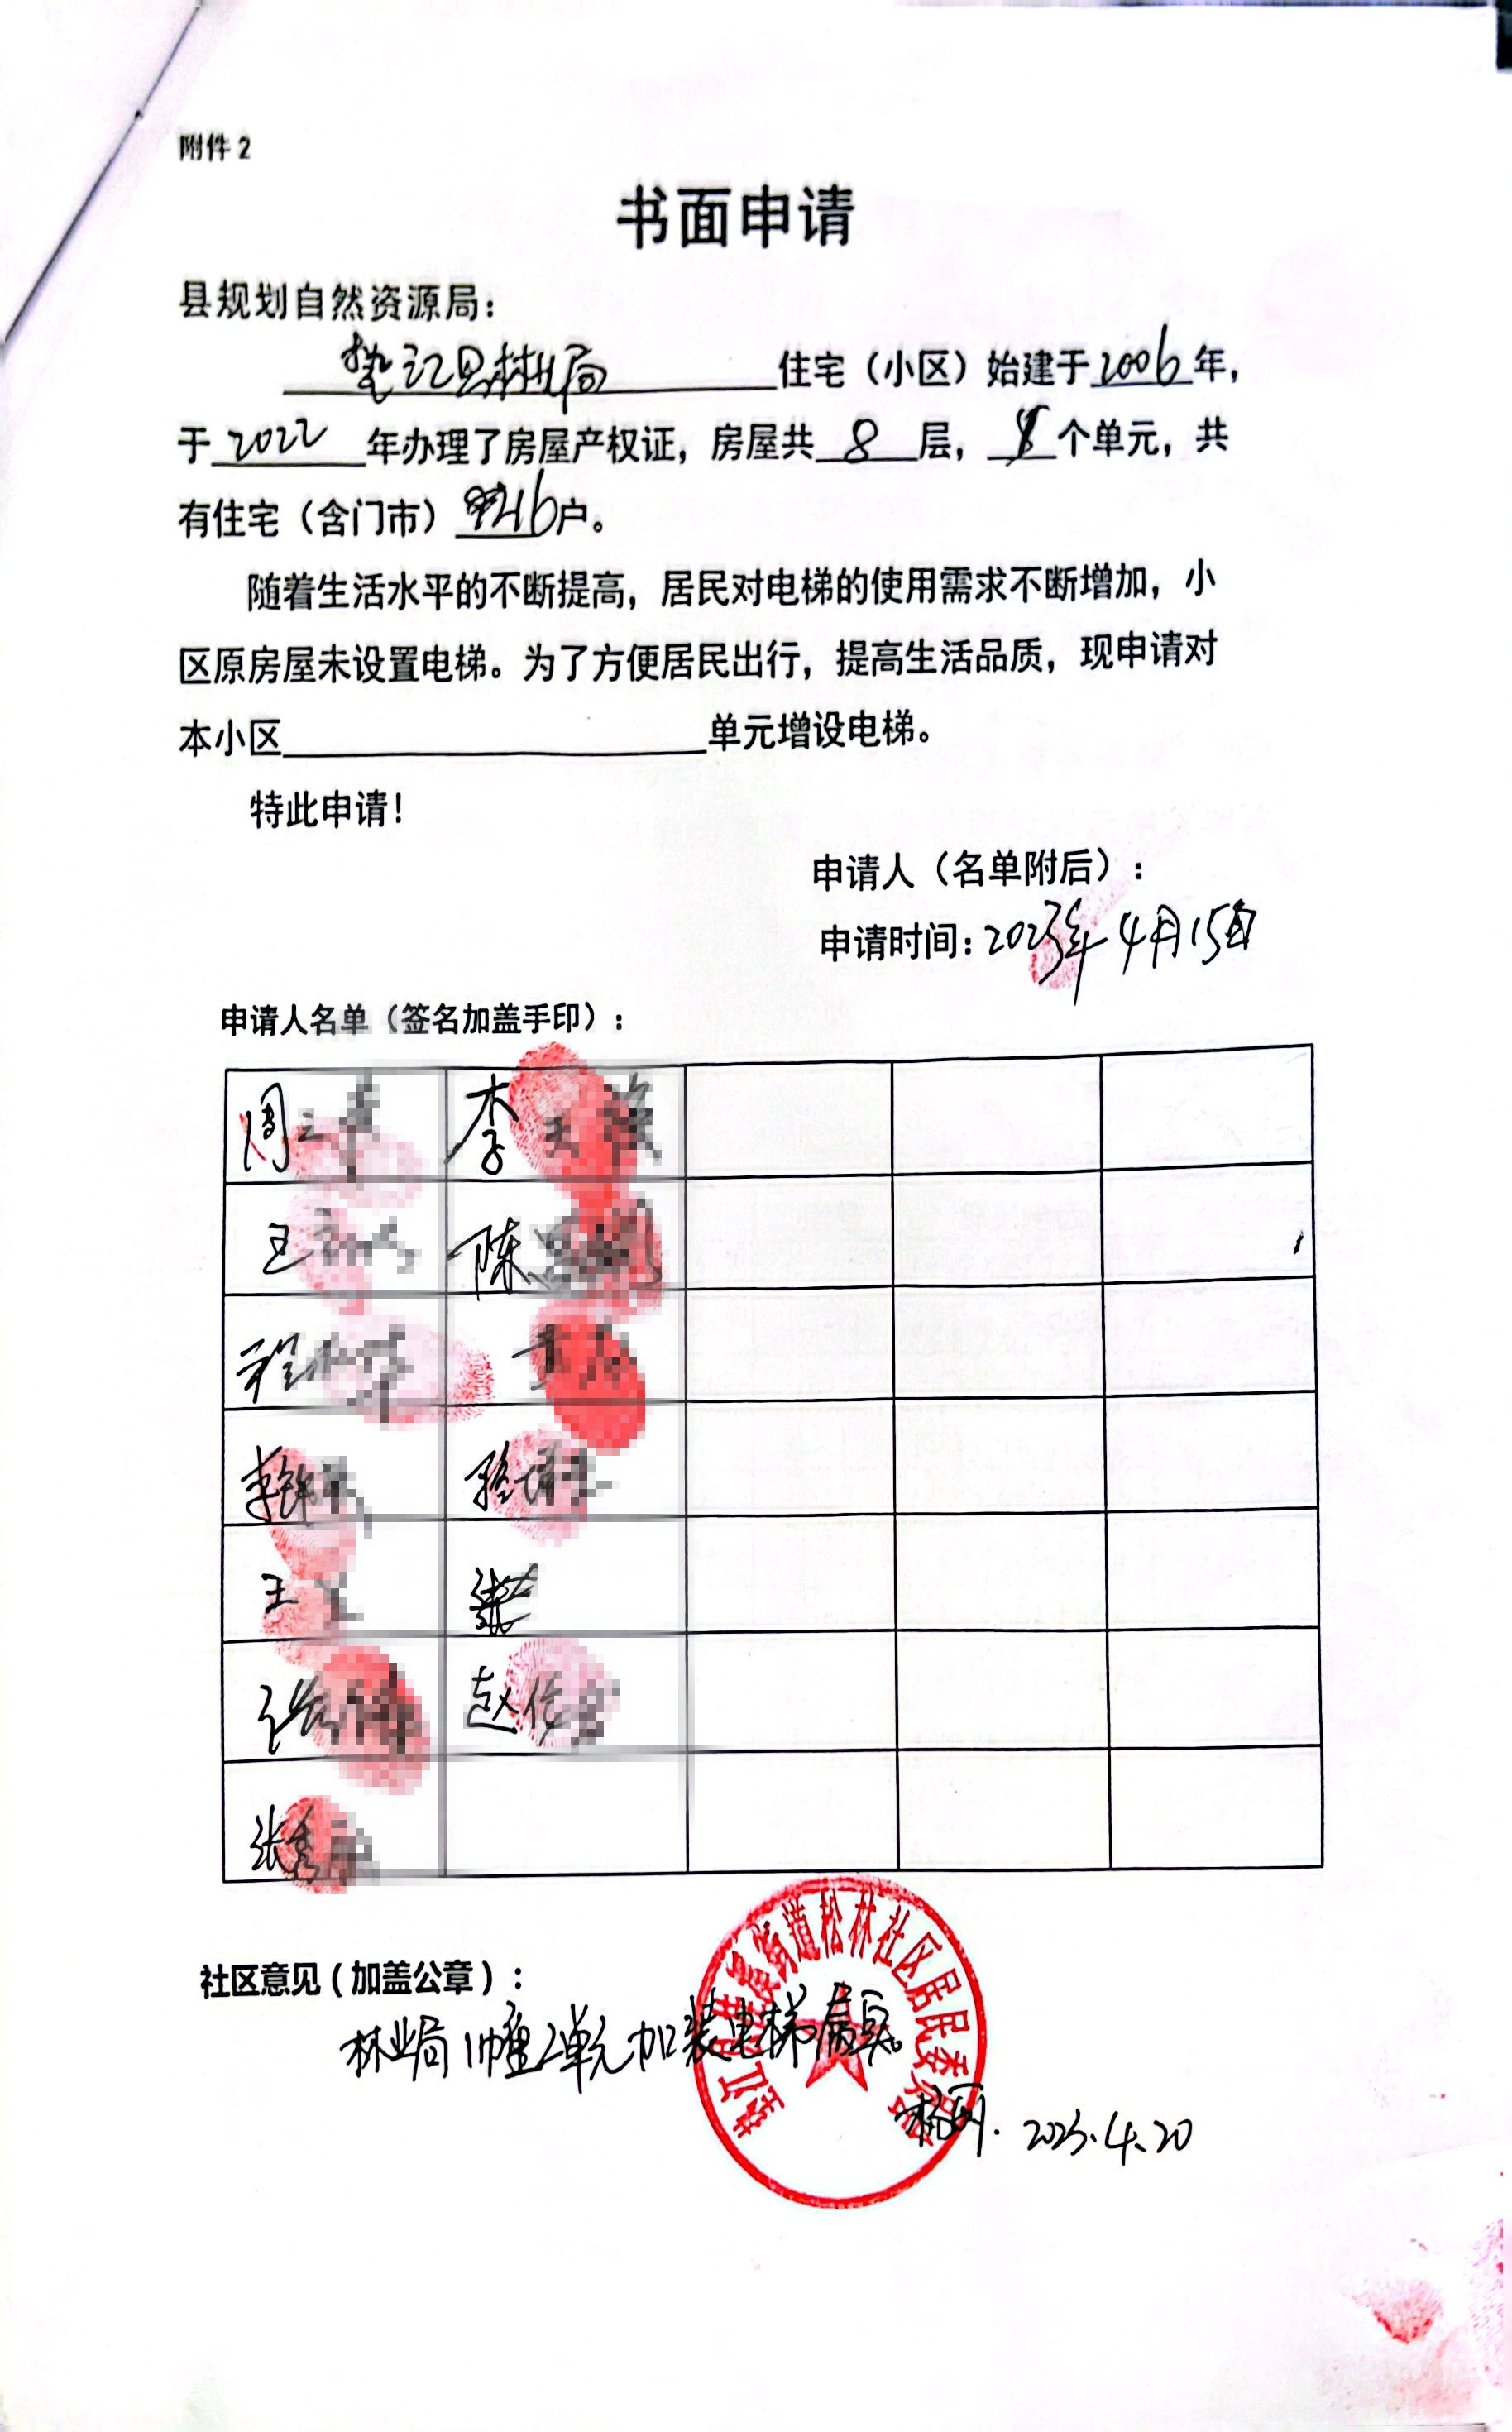 附件 2
书面申请
县规划自然资源局：
垫江县林业局住宅（小区）始建于2006年，
于2022年办理了房屋产权证，房屋共8层，个单元，共
有住宅（含门市）16户。
随着生活水平的不断提高，居民对电梯的使用需求不断增加，小
区原房屋未设置电梯。为了方便居民出行，提高生活品质，现申请对
本小区单元增设电梯。
特此申请！
申请人（名单附后）：
申请时间：2023年4月15日
申请人名单（签名加盖手印）：
周 李
王 陈
程 黄
李
王 张
赵
张
社区意见（加盖公章）：
林业局1幢2单元加装电梯属实。
垫江县桂溪街道松林社区居民委员会
2023.4.20